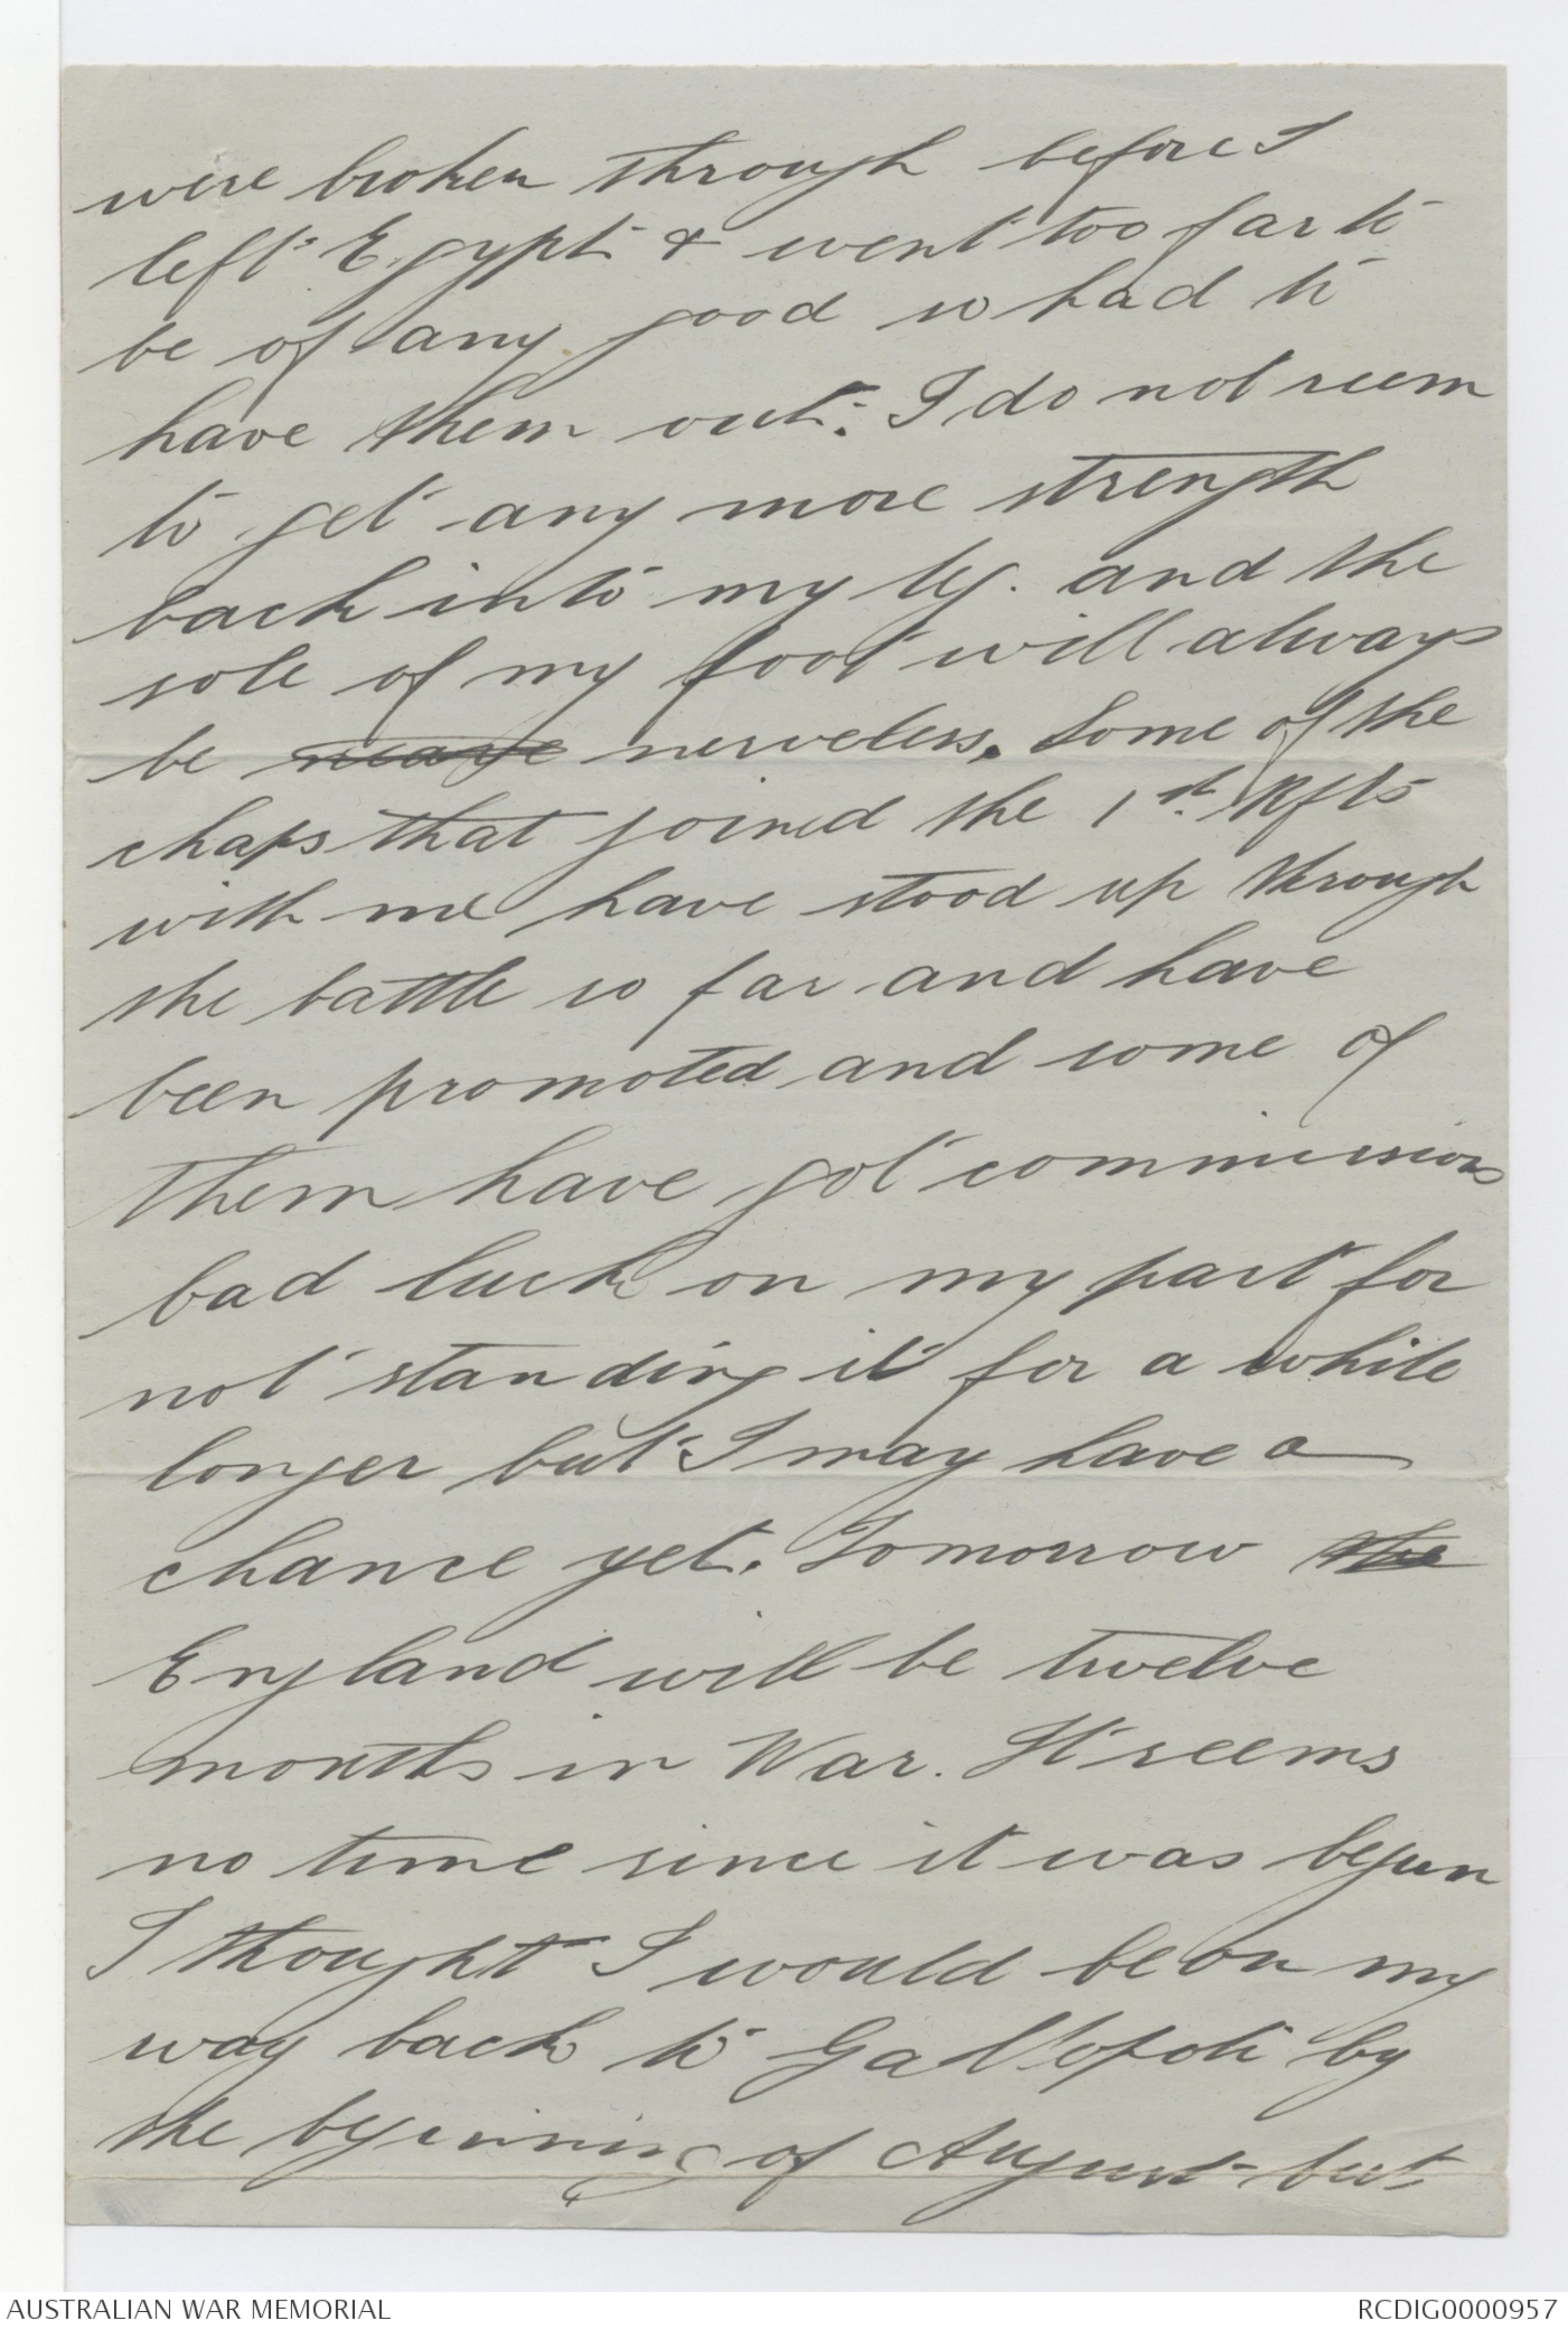 were broken through before I
left Egypt & went too far to
be of any good so had to
have them out. I do not seem
to get any more strength
back into my leg. and the
sole of my foot will always
be nerveless. Some of the
chaps that joined the 1st. Rfts
with me have stood up through
the battle so far and have
been promoted and some of
them have got commissions
bad luck on my part for
not standing it for a while
longer but I may have a
chance yet. Tomorrow the
England will be twelve
months in War. It seems
no time since it was begun
I thought I would be on my
way back to Gallopoli by
the beginning of August but
AUSTRALIAN WAR MEMORIAL
RCDIG0000957